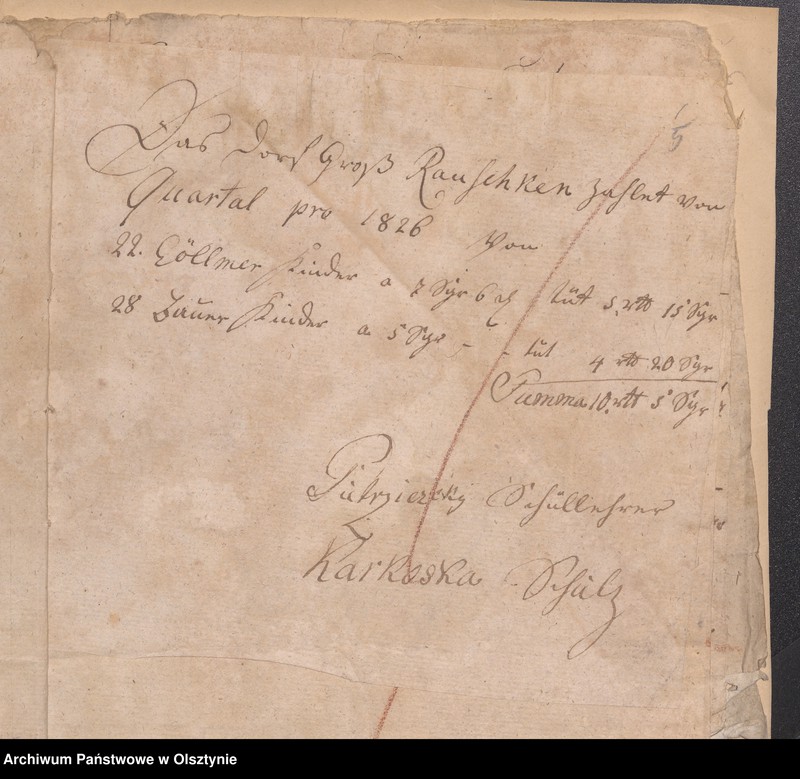 5
Das Dorf Groß Rauschken zahlet von
Quartal pro 1826 Von
22. Cöllmer Kinder a 7 Sgr 6 ₰ tut 5 rtt 15 Sgr
28 Bauer Kinder a 5 Sgr - - tut 4 rtt 20 Sgr
Summa 10 rtt 5 Sgr
Schullehrer
Karkoska Schulz
Archiwum Państwowe w Olsztynie